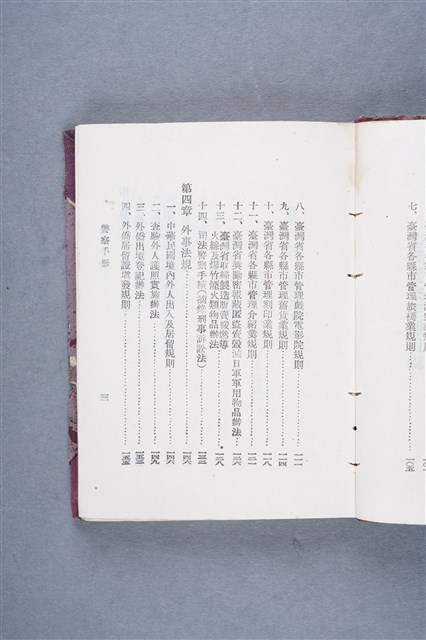 七、臺灣省各縣市管理旅棧業規則……一〇五
八、臺灣省各縣市管理戲院電影院規則……一一一
九、臺灣省各縣市管理舊貨業規則……一一四
十、臺灣省各縣市管理刻印業規則……一一八
十一、臺灣省各縣市管理介紹業規則……一二一
十二、臺灣省獎勵密報藏匿盜賣毀滅日軍軍用物品辦法……一二六
十三、臺灣省取締製造販賣或燃導
火線及爆竹煙火類物品辦法……一二八
十四、司法警察手續（摘錄刑事訴訟法）……一三三
第四章 外事法規……一四六
一、中華民國境內外人出入及居留規則……一四六
二、查驗外人護照實施辦法……一四九
三、外僑出境登記辦法……一五三
四、外僑居留證填發規則……一五五
警察手册
三